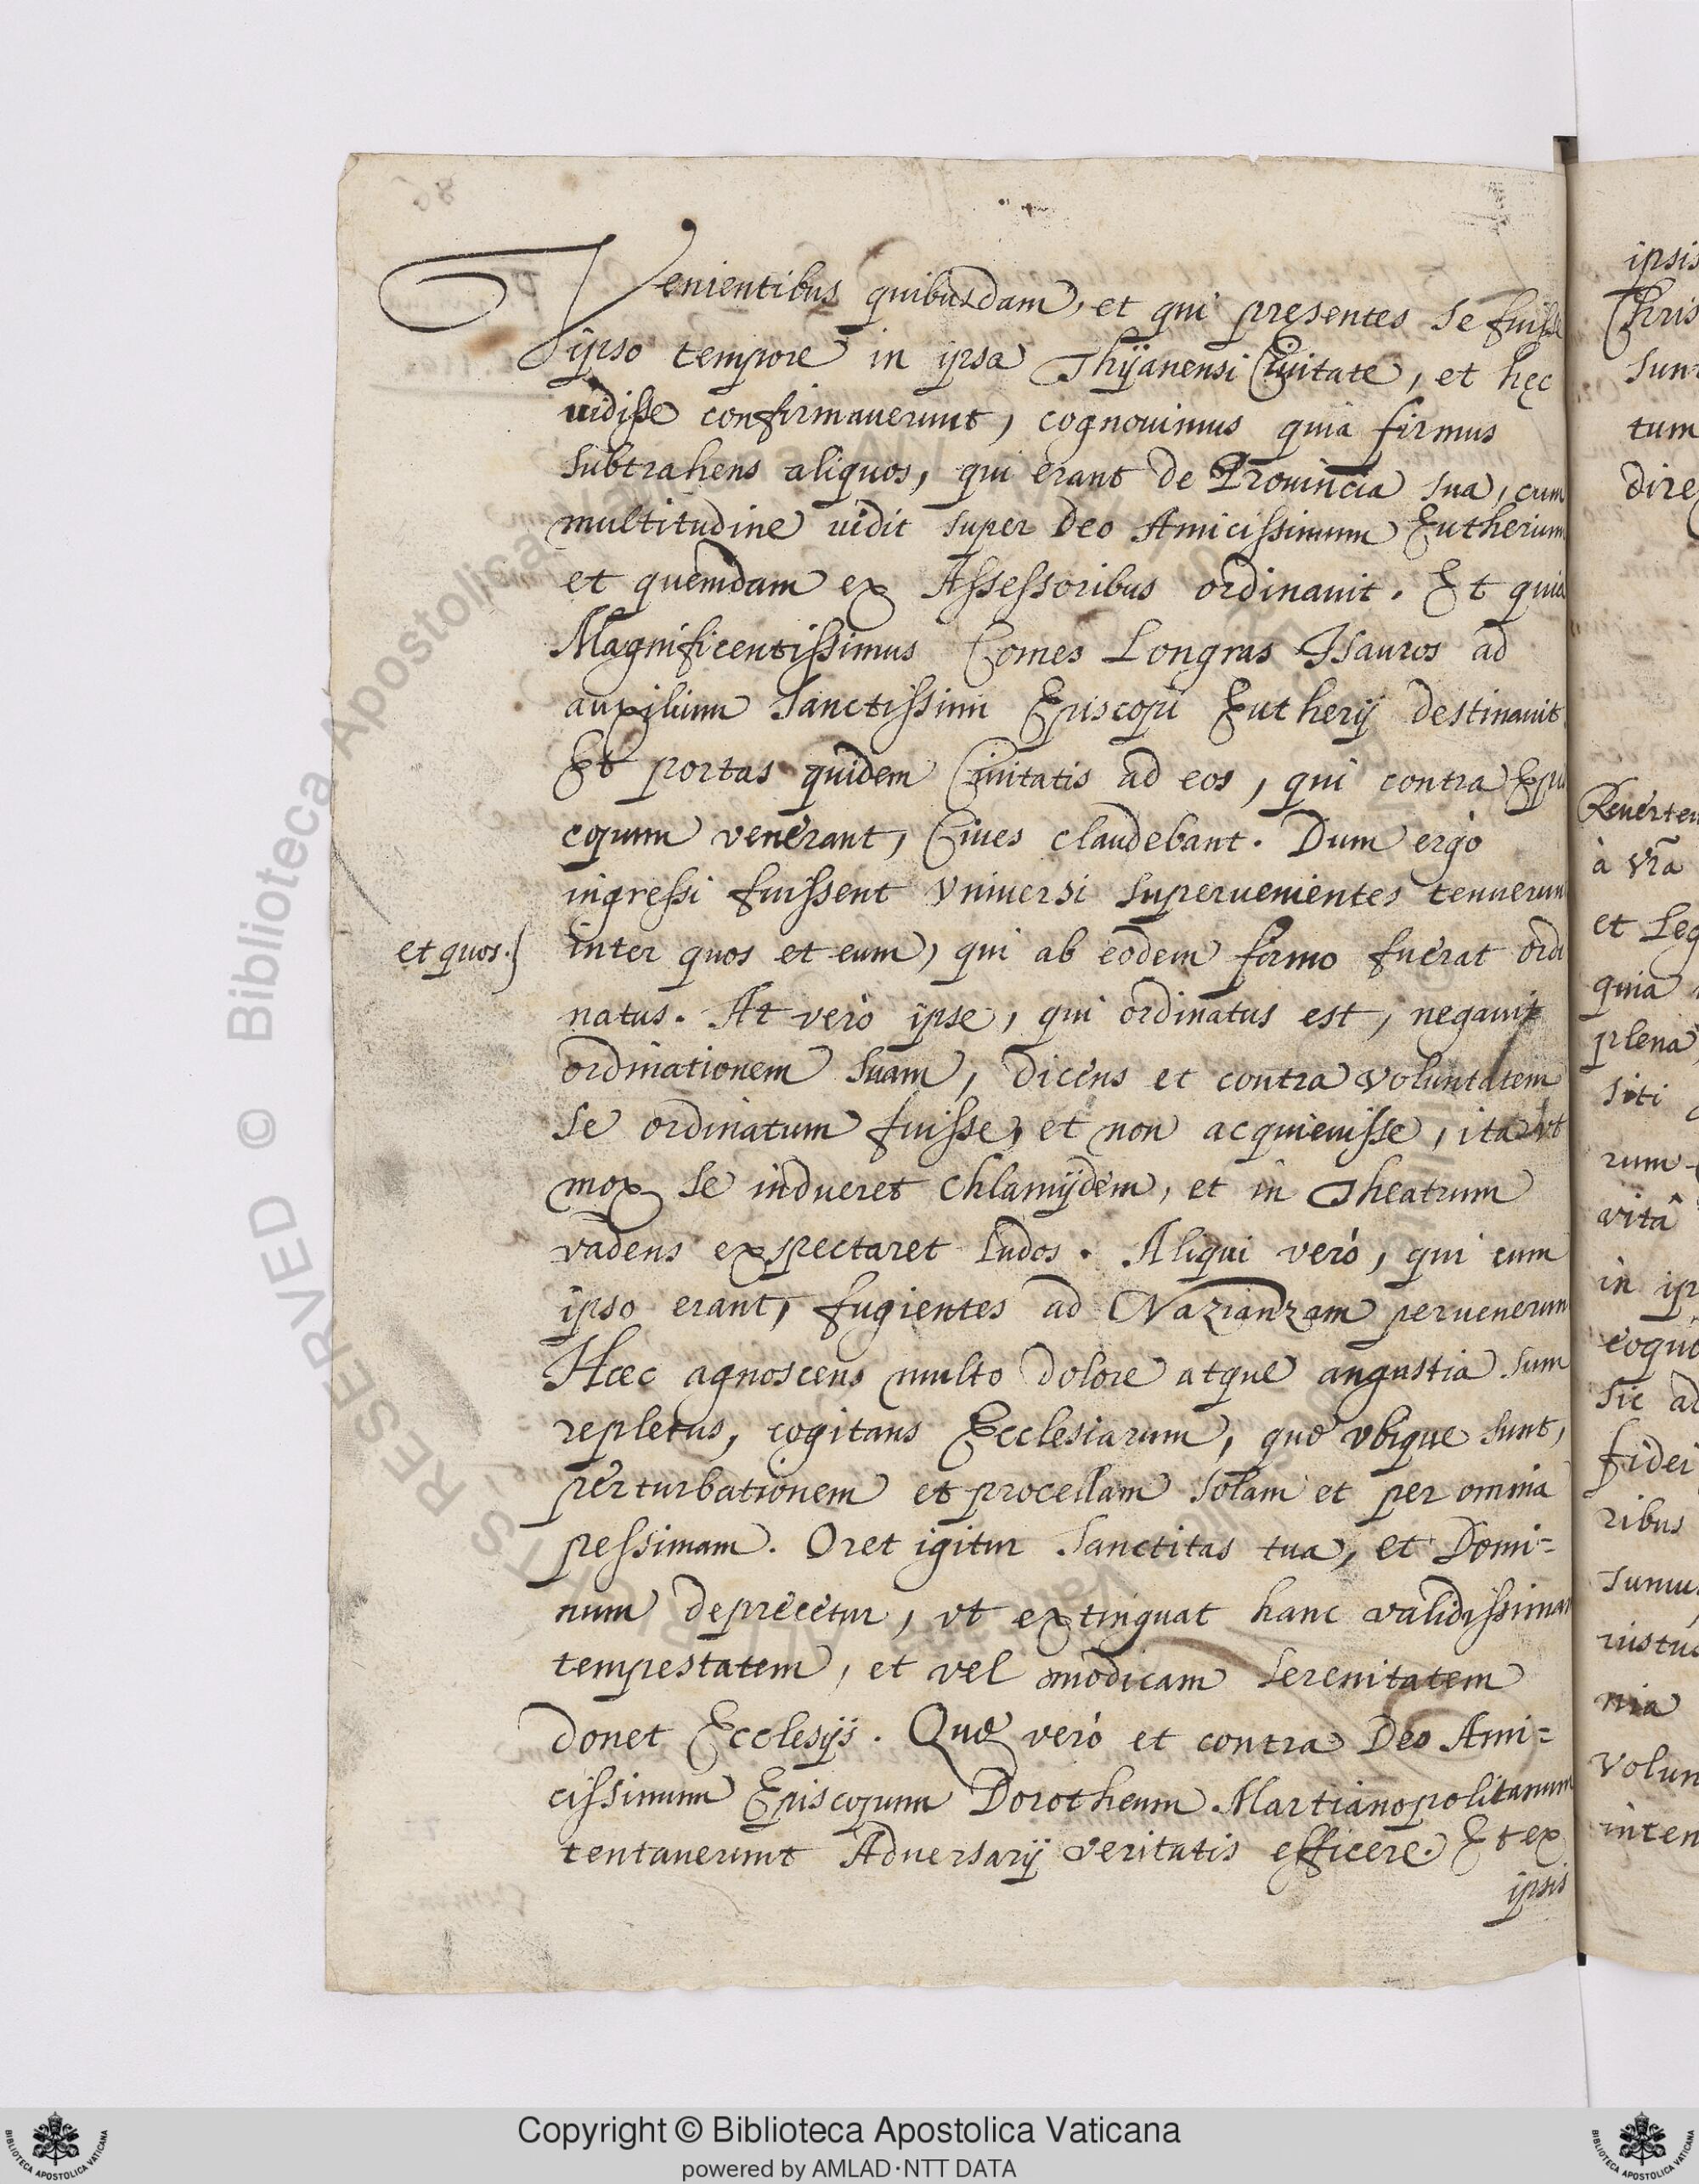 Venientibus quibusdam, et qui presentes se fuisse
ipso tempore in ipsa Thÿanensi Ciuitate, et hęc
uidisse confirmauerunt, cognouimus quia firmus
subtrahens aliquos, qui erant de Prouincia sua, cum
multitudine uidit super Deo Amicissimum Eutherium
et quemdam ex Assessoribus ordinauit. Et quia
Magnificentissimus Comes Longras Isauros ad
auxilium Sanctissimi Episcopi Eutherij destinauit.
Et portas quidem Ciuitatis ad eos, qui contra Epis
copum venerant, Ciues claudebant. Dum ergò
ingressi fuissent vniuersi superuenientes tenuerun
et quos.} inter quos et eum, qui ab eodem firmo fuerat ordi
natus. At verò ipse, qui ordinatus est, negauit
ordinationem suam, dicens et contra voluntatem
se ordinatum fuisse, et non acquieuisse, ita vt
mox se indueret chlamÿdem, et in Theatrum
vadens expectaret ludos. Aliqui verò, qui cum
ipso erant, fugientes ad Nazianzam peruenerun
Hæc agnoscens multo dolore atque angustia sum
repletus, cogitans Ecclesiarum, quæ vbique sunt,
perturbationem et procellam solam et per omnia
pessimam. Oret igitur Sanctitas tua, et Domi=
num deprecetur, vt extinguat hanc validissimam
tempestatem, et vel modicam serenitatem
donet Ecclesijs. Quæ verò et contra Deo Ami=
cissimum Episcopum Dorotheum Martianopolitanum
tentauerunt Aduersarij veritatis efficere. Et ex
ipsis
ipsis
Chris
sunt
tum
dire
Reuerten
à vr̃a
et Leg
quia
plena
siti
rum
vitâ
in ip
sic ad
fidei
ribus
sumus
iustu
nia
volun
inten
86
© Biblioteca Apostolica Vaticana ALL RIGHTS RESERVED
Copyright © Biblioteca Apostolica Vaticana
powered by AMLAD·NTT DATA
BIBLIOTECA APOSTOLICA VATICANA
BIBLIOTECA APOSTOLICA VATICANA